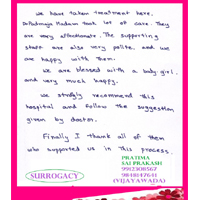 We have taken treatment here.
Dr.Padmaja Madam took lot of care. They
are very affectionate. The supporting
staff are also very polite. and we
are happy with them.
We are blessed with a baby girl.
and very much happy.
We strongly recommend this
hospital and follow the suggestion
given by doctor.
Finally I thank all of them
who supported us in this process.
SURROGACY
PRATIMA
SAI PRAKASH
9912308567
9848147641
(VIJAYAWADA)